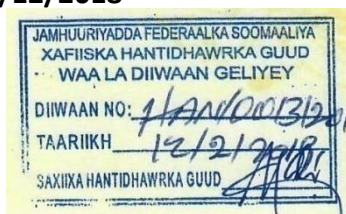 JAMHUURIYADDA FEDERAALKA SOOMAALIYA
XAFIISKA HANTIDHAWRKA GUUD
WAA LA DIIWAAN GELIYEY
DIIWAAN NO:
TAARIIKH 12/2/2018
SAXIIXA HANTIDHAWRKA GUUD